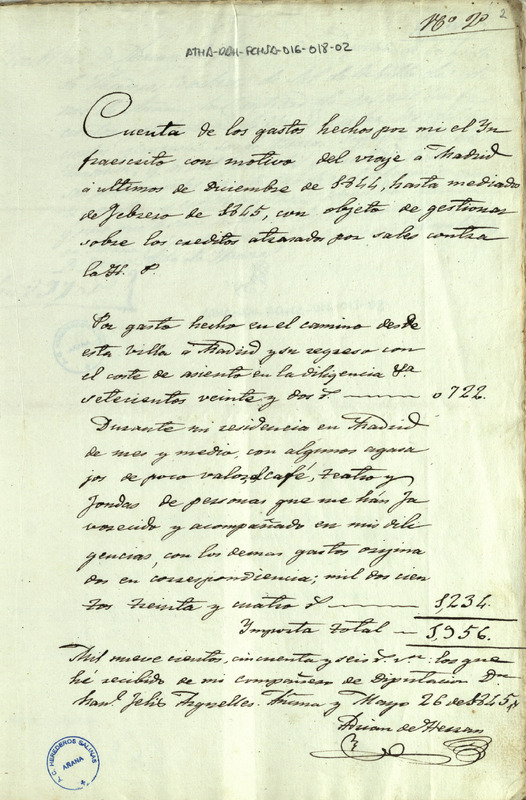 Nº 20 2
ATHA-DAH-FCHSA-016-018-02
Cuenta de los gastos hechos por mi el Yn
fraescrito con motivo del viaje á Madrid
á ultimos de diciembre de 1844, hasta mediado
de Febrero de 1845, con objeto de gestionar
sobre los creditos atrasados por sales contra
la H. P.
Por gasto hecho en el camino desde
esta villa á Madrid y su regreso con
el coste de asiento en la diligencia &a
setecientos veinte y dos r. 0722.
Durante mi residencia en Madrid
de mes y medio, con algunos agasa
jos de poco valor, café, teatro y
fondas de personas que me hán fa
vorecido y acompañado en mis dili
gencias, con los demas gastos origina
dos en correspondencia; mil dos cien
tos treinta y cuatro r. 1,234.
Importa total 1,956.
Mil nueve cientos, cincuenta y seis r. vn. los que
hé recibido de mi compañero de diputacion Dn.
Man.l Felix Añana y Mayo 26 de 1845,
de Herran
T.C. HEREDEROS SALINAS
AÑANA